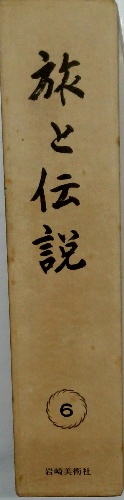 旅と伝説
6
岩崎美術社